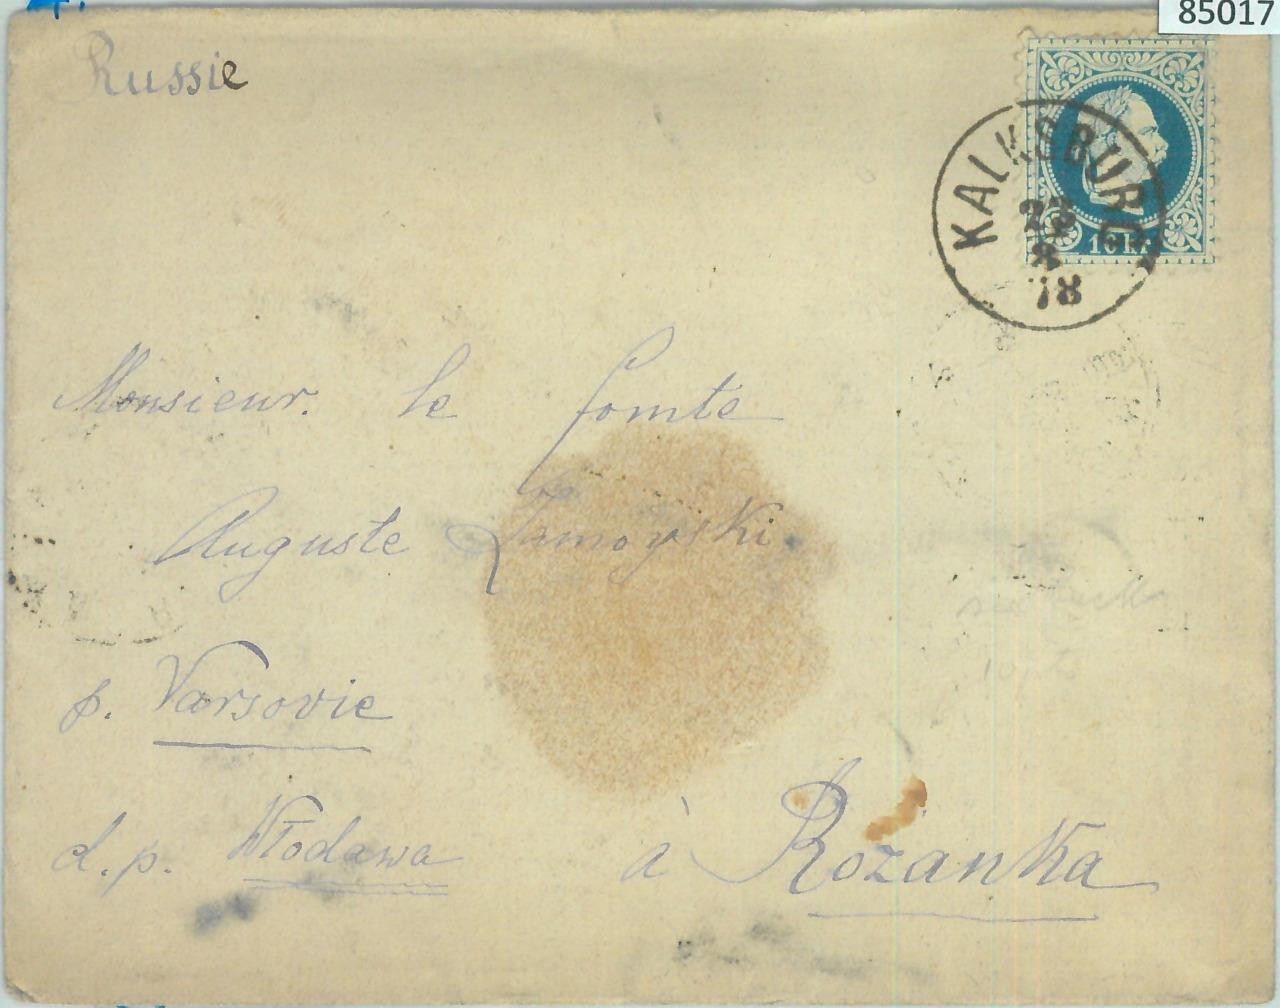 85017
Russie
KALKSBURG
23
8
78
10 kr
Monsieur. le Comte
Auguste Zamoyski
p. Varsovie
d.p. Włodawa à Rożanka